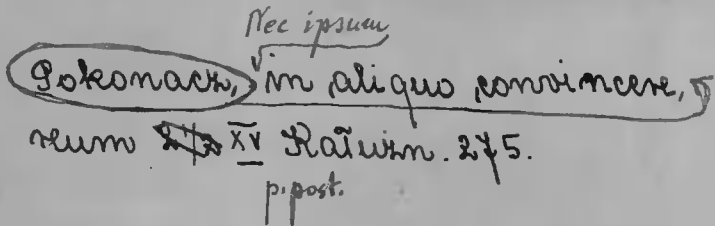 Nec ipsum
Pokonacz, in aliquo convincere,
reum XV Kałużn. 275.
p. post.